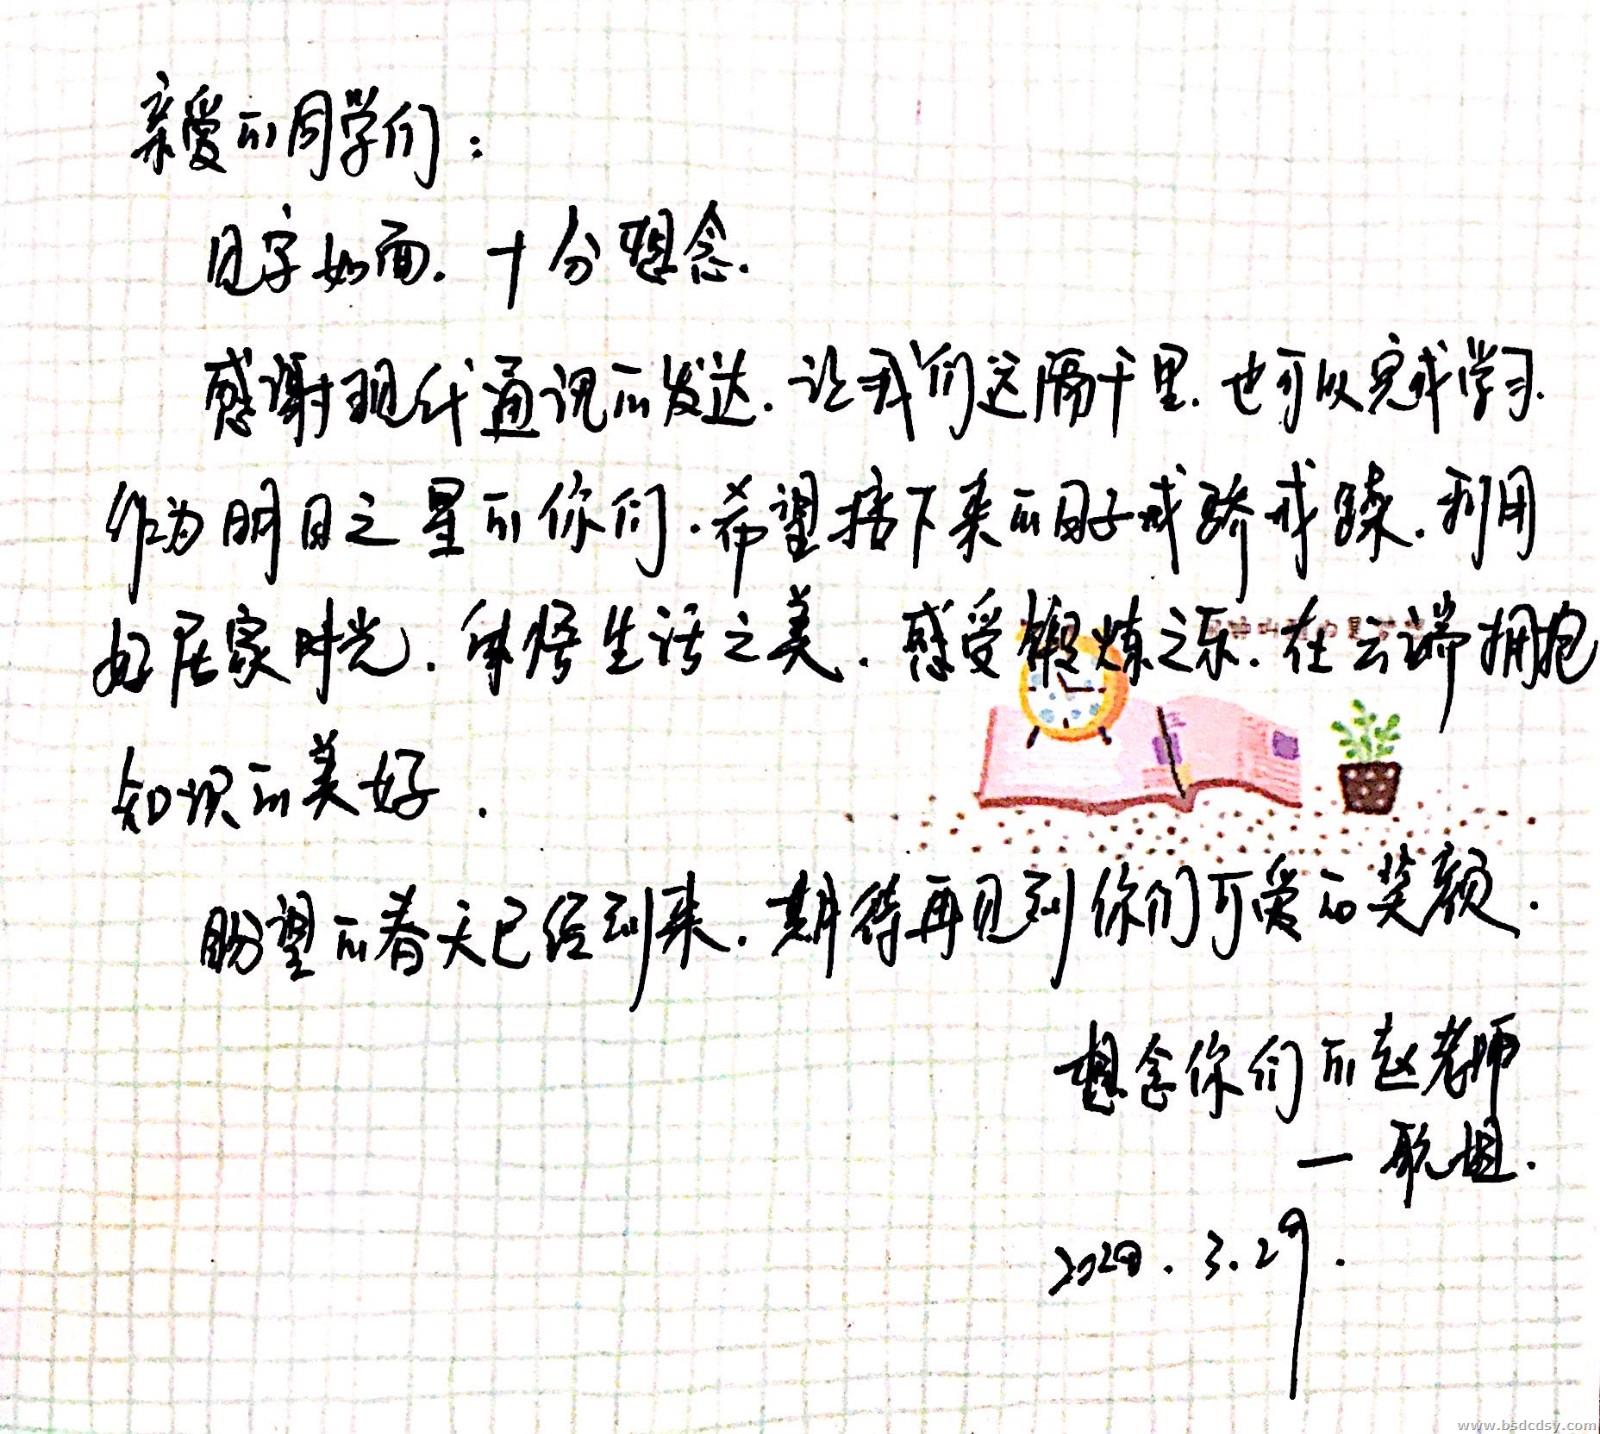 亲爱的同学们：
见字如面.十分想念.
感谢现代通讯的发达.让我们远隔千里.也可以完成学习.
作为明日之星的你们.希望接下来的日子戒骄戒躁.利用
好居家时光.体悟生活之美.感受锻炼之乐.在云端拥抱
知识的美好.
盼望的春天已经到来.期待再见到你们可爱的笑颜.
想念你们的赵老师
一耿姐.
2020.3.29.
www.bsdcdsy.com